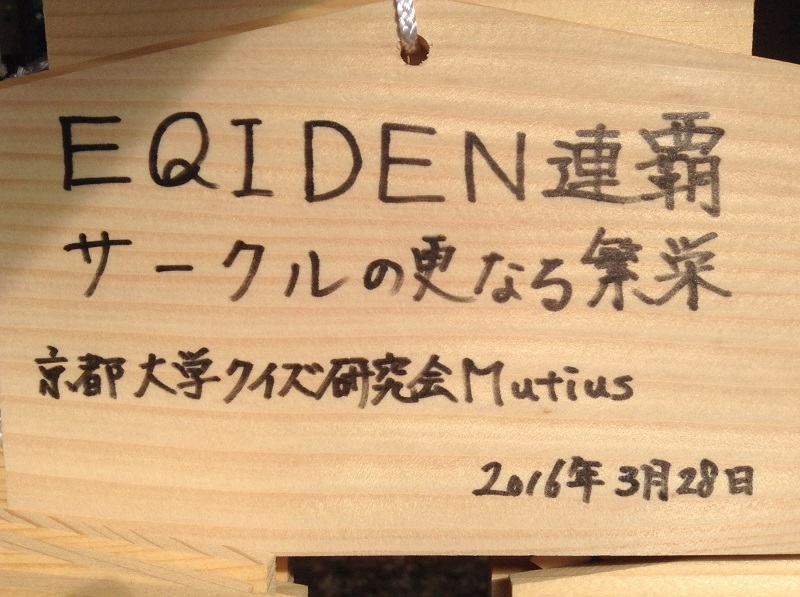 EQIDEN連覇
サークルの更なる繁栄
京都大学クイズ研究会Mutius
2016年3月28日